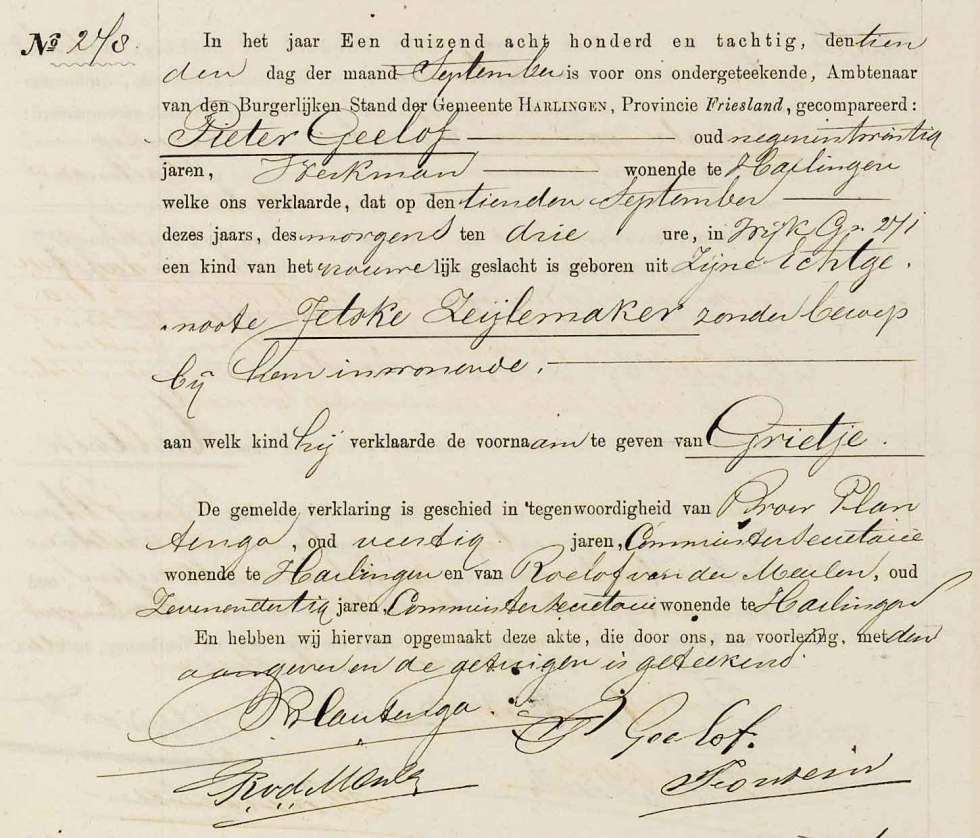 No 278.
In het jaar Een duizend acht honderd en tachtig, den tien
den dag der maand September is voor ons ondergeteekende, Ambtenaar
van den Burgerlijken Stand der Gemeente HARLINGEN, Provincie Friesland, gecompareerd:
Pieter Geelof oud negenentwintig
jaren, Werkman wonende te Harlingen
welke ons verklaarde, dat op den tienden September
dezes jaars, des morgens ten drie ure, in Wijk G, 271
een kind van het vrouwelijk geslacht is geboren uit Zijne Echtge.
noote Jetske Zeijlemaker zonder beroep
bij hem inwonende.
aan welk kind hij verklaarde de voornaam te geven van Grietje.
De gemelde verklaring is geschied in tegenwoordigheid van Broer Plan
tenga, oud veertig jaren, Commies ter Secretarie
wonende te Harlingen en van Roelof van der Meulen, oud
Zevenendertig jaren, Commies ter Secretarie wonende te Harlingen
En hebben wij hiervan opgemaakt deze akte, die door ons, na voorlezing, met den
aangever en de getuigen is geteekend.
B Plantenga. P Geelof.
R v d Meulen Fontein